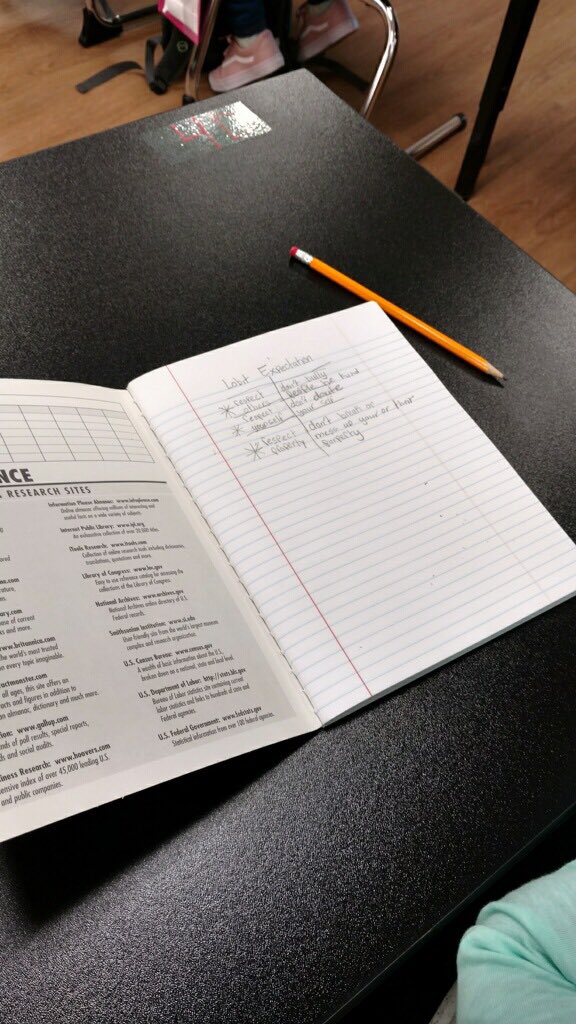 NCE
RESEARCH SITES
Information Please Almanac: www.infoplease.com
Online almanac offering millions of interesting and
useful facts on a wide variety of subjects.
Internet Public Library: www.ipl.org
An exhaustive collection of over 20,000 titles.
iTools Research: www.itools.com
Collection of online research tools including dictionaries,
translations, quotations and more.
Library of Congress: www.loc.gov
Easy to use reference catalog for accessing the
collections of the Library of Congress.
National Archives: www.archives.gov
National Archives online directory of U.S.
Federal records.
Smithsonian Institution: www.si.edu
User friendly site from the world's largest museum
complex and research organization.
U.S. Census Bureau: www.census.gov
A wealth of basic information about the U.S.
broken down on a national, state and local level.
U.S. Department of Labor: http://stats.bls.gov
Bureau of Labor statistics site covering current
labor statistics and links to hundreds of state and
Federal agencies.
U.S. Federal Government: www.fedstats.gov
Statistical information from over 100 federal agencies.
ome.com
erature
ns.
ary.com
base of current
es and more.
www.britannica.com
the world's most trusted
n every topic imaginable.
actmonster.com
all ages, this site offers an
acts and figures in addition to
an almanac, dictionary and much more.
tion: www.gallup.com
nds of poll results, special reports,
ds and social audits.
iness Research: www.hoovers.com
ehensive index of over 45,000 leading U.S.
and public companies.
Expectation
* respect others don't bully
people be kind
* respect yourself don't
your self
* respect property don't or
mess up your or